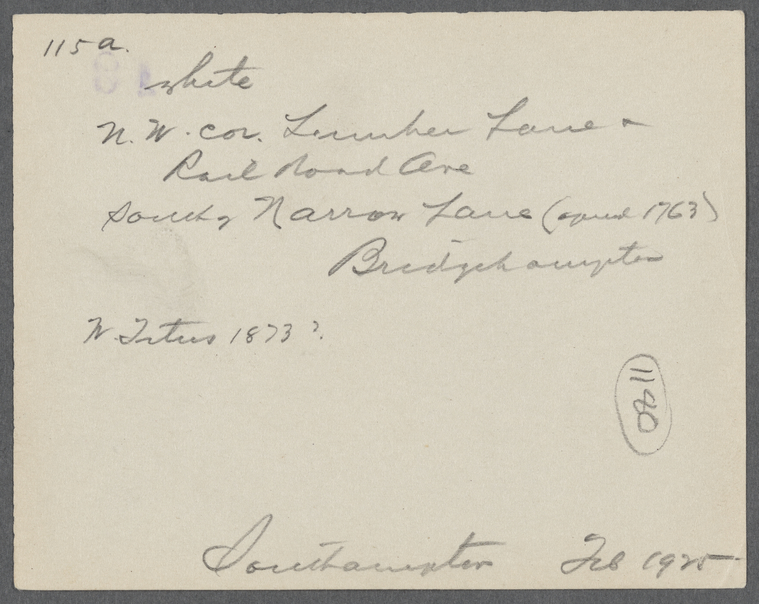 115a.
White
N.W. cor. Lumber Lane &
Rail Road Ave
South of Narrow Lane (opened 1763)
Bridgehampton
W. Titus 1873?
1180
Southampton Feb 1925